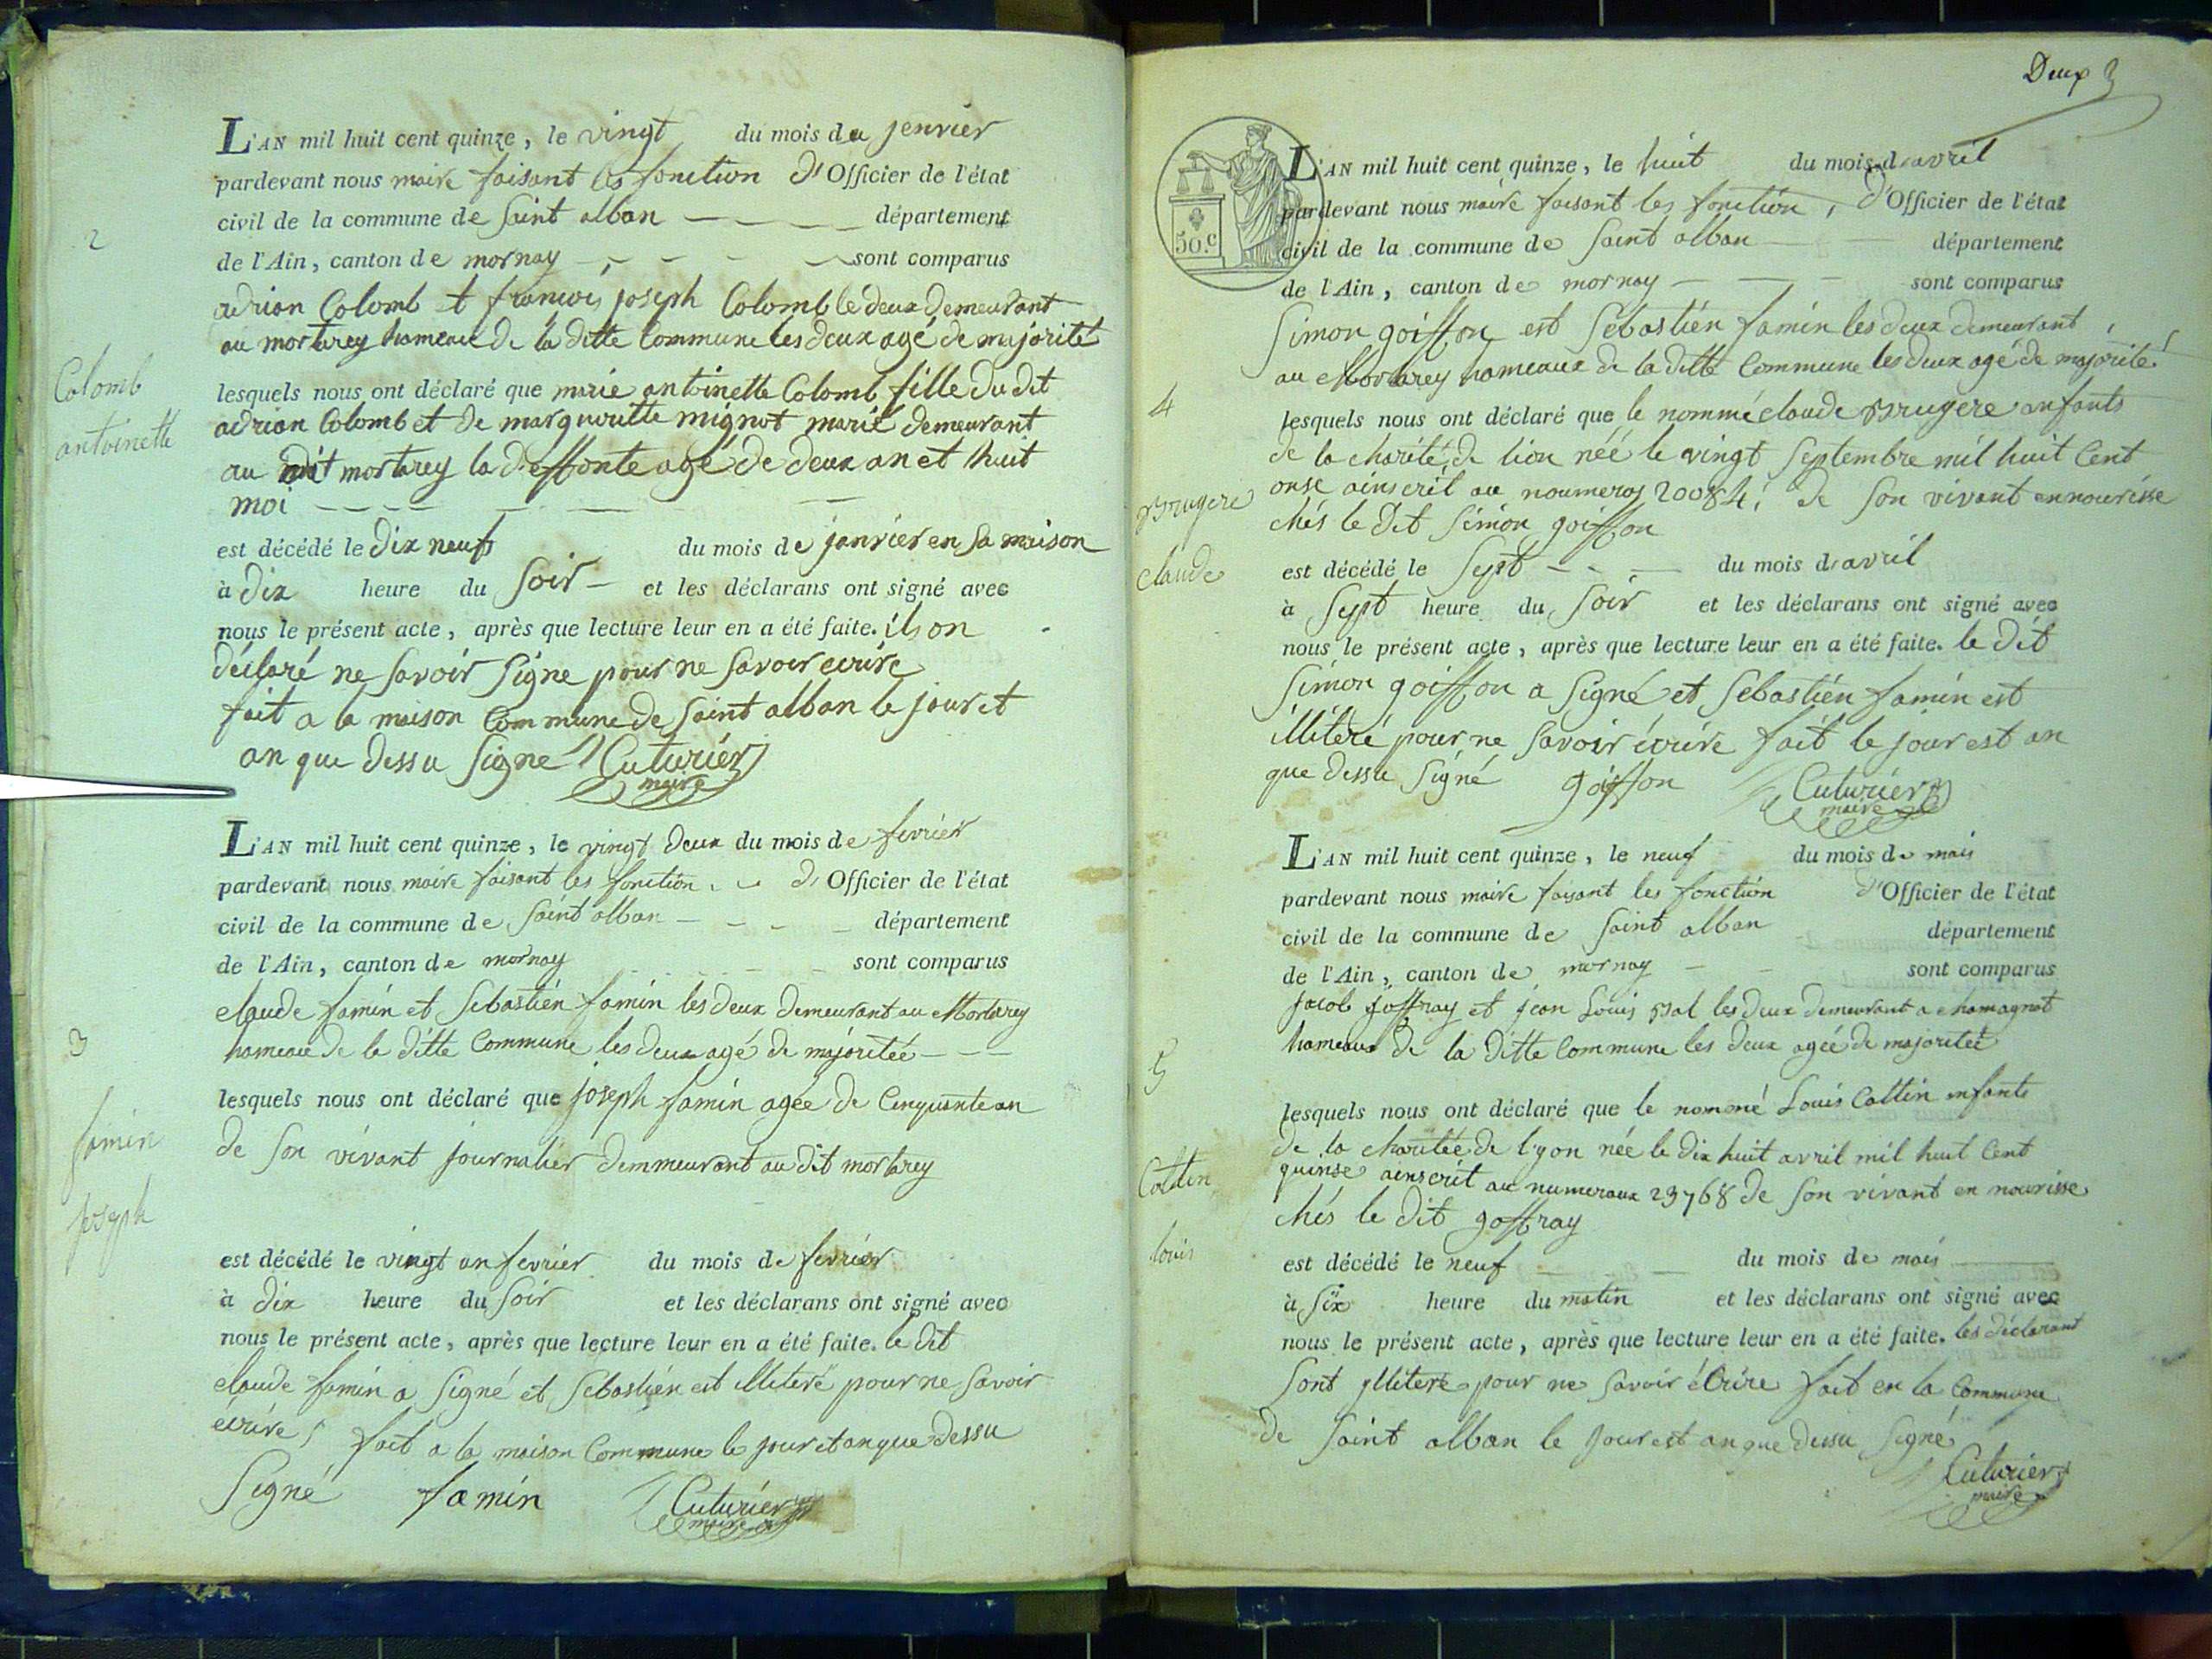 2
Colomb
antoinette
L'AN mil huit cent quinze, le vingt du mois de jenvier
pardevant nous maire faisant les fonction d'Officier de l'état
civil de la commune de Saint alban département
de l'Ain, canton de mornay sont comparus
adrian Colomb et francois joseph Colomb le deux demeurant
au mortarey hameaux de la ditte Commune les deux agé de majorité
lesquels nous ont déclaré que marie antoinette Colomb fille du dit
adrian Colomb et de margueritte mignot marié demeurant
au dit mortarey la deffonte agé de deux an et huit
moi
est décédé le dix neuf du mois de janvier en sa maison
à dix heure du Soir et les déclarans ont signé avec
nous le présent acte, après que lecture leur en a été faite. ils on
déclaré ne savoir Signe pour ne savoir ecrire
fait a la maison Commune de Saint alban le jour et
an que dessu Signe Cuturier
maire
3
famin
joseph
L'AN mil huit cent quinze, le vingt deux du mois de fevrier
pardevant nous maire faisant les fonction d'Officier de l'état
civil de la commune de Saint alban département
de l'Ain, canton de mornay sont comparus
claude famin et Sebastién famin les deux demeurant au Mortarey
hameau de la ditte Commune les deux agé de majoritéé
lesquels nous ont déclaré que joseph famin agée de Cinquante an
de son vivant journalier demmeurant au dit mortarey
est décédé le vingt un fevrier du mois de fevrier
à dix heure du Soir et les déclarans ont signé avec
nous le présent acte, après que lecture leur en a été faite. le dit
claude famin a Signé et Sebastién est illiteré pour ne Savoir
écrire, fait a la maison Commune le jour et an que dessu
Signé famin Cuturier
maire
Deux
50.c
4
Brugere
claude
L'AN mil huit cent quinze, le huit du mois d'avril
pardevant nous maire faisant les fonction, d'Officier de l'état
civil de la commune de Saint alban département
de l'Ain, canton de mornay sont comparus
Simon goiffon est Sebastién famin les deux demeurant
au Mortarey hameaux de la ditte Commune les deux agé de majorité
lesquels nous ont déclaré que le nommé claude Brugere anfants
de la charité de lion néé le vingt Septembre mil huit Cent
onse ainscrit au noumeros 20084, de Son vivant en nourisse
chés le dit Simon goiffon
est décédé le Sept du mois d'avril
à Sept heure du Soir et les déclarans ont signé avec
nous le présent acte, après que lecture leur en a été faite. le dit
Simon goiffon a Signé et Sebastién famin est
illiteré pour ne Savoir écrire fait le jour est an
que dessu Signé goiffon Cuturier
maire
5
Cottin
louis
L'AN mil huit cent quinze, le neuf du mois de mais
pardevant nous maire faisant les fonction d'Officier de l'état
civil de la commune de Saint alban département
de l'Ain, canton de mornay sont comparus
jacob joffray et jean Louis Bal les deux demeurant a chamagnat
hameaux de la ditte Commune les deux agéé de majoritéé
lesquels nous ont déclaré que le nommé Louis Cottin enfants
de la charitée de lyon née le dix huit avril mil huit Cent
quinse ainscrit au numeraux 23768 de Son vivant en nourisse
chés le dit goffray
est décédé le neuf du mois de mais
à Six heure du matin et les déclarans ont signé avec
nous le présent acte, après que lecture leur en a été faite. les déclarant
Sont illiteré pour ne Savoir écrire fait en la Commune
de Saint alban le jour est an que dessu Signé
Cuturier
maire